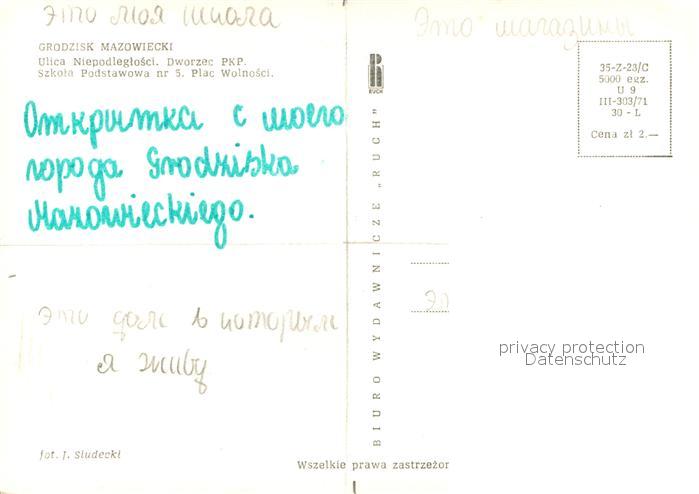 Это моя школа
Это магазины
GRODZISK MAZOWIECKI
Ulica Niepodległości. Dworzec PKP.
Szkoła Podstawowa nr 5. Plac Wolności.
RUCH
35-Z-23/C
5000 egz.
U 9
III-303/71
30 - L
Cena zł 2.—
Открытка с моего
города Grodziska
Mazowieckiego.
BIURO WYDAWNICZE „RUCH"
Это доме в котором
я живу
privacy protection
Datenschutz
fot. J. Siudecki
Wszelkie prawa zastrzeżon